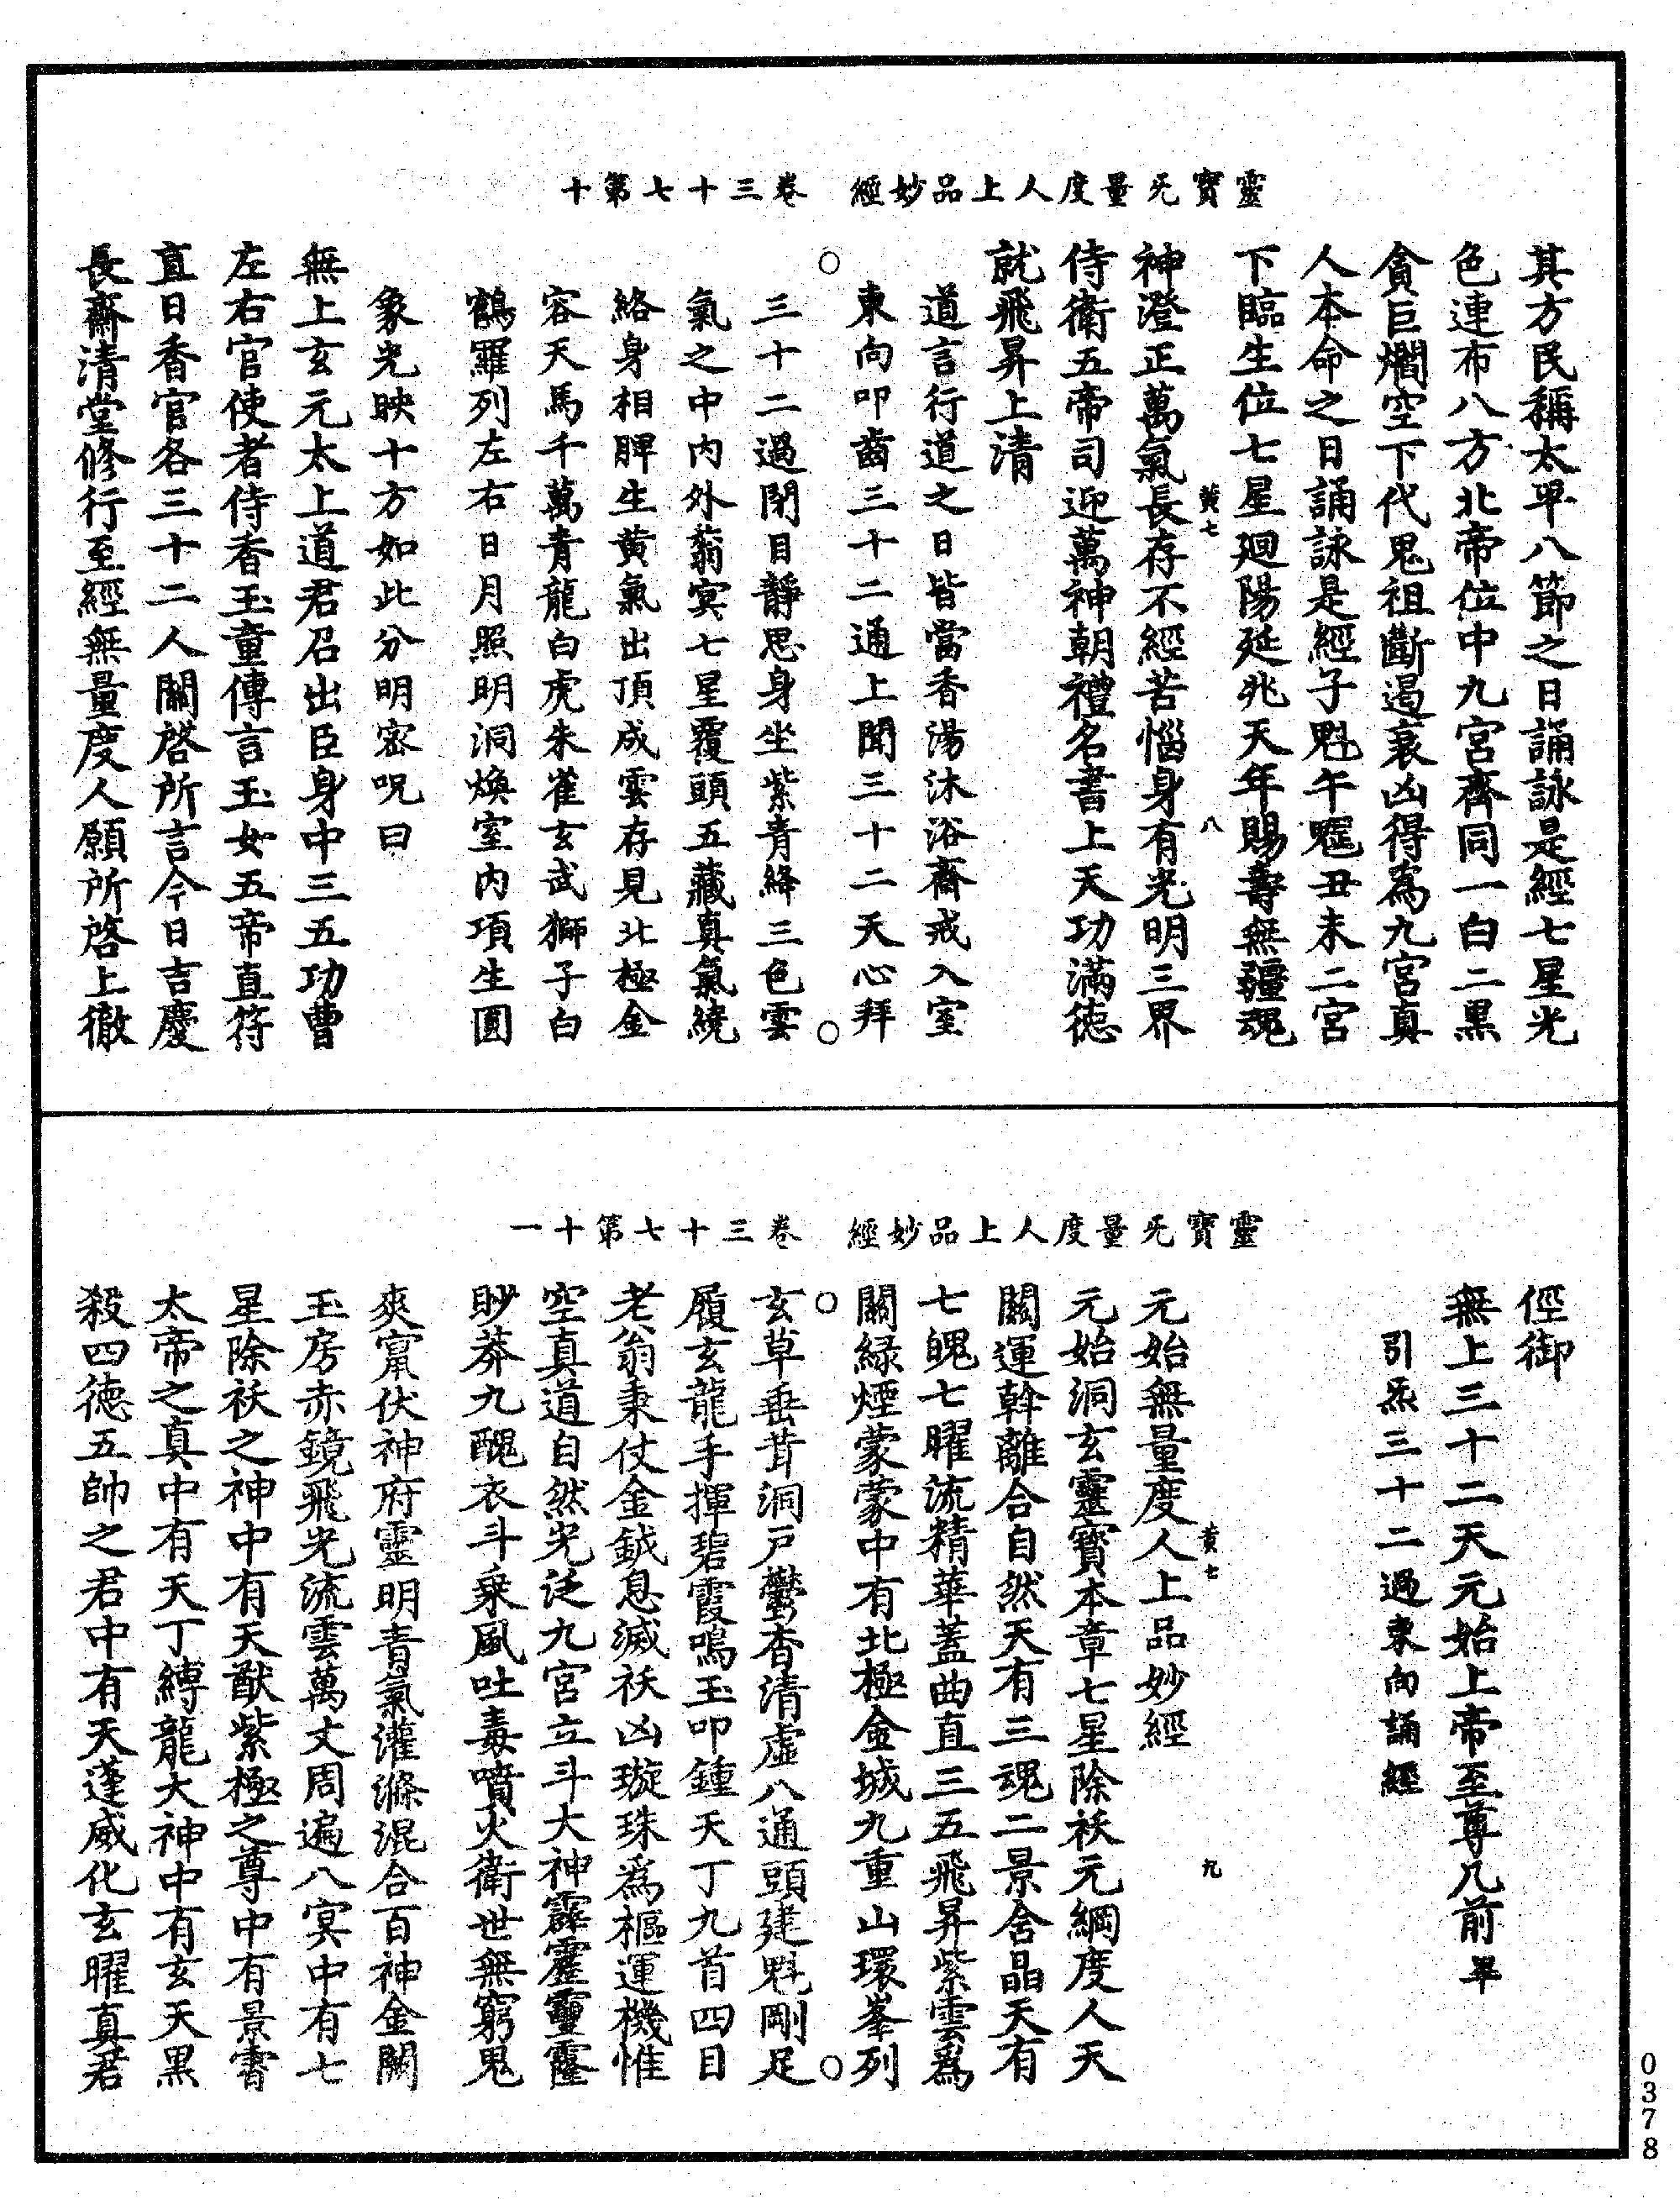 靈寶无量度人上品妙經　卷三十七第十
其方民稱太平八節之日誦詠是經七星光
色連布八方北帝位中九宮齊同一白二黑
貪巨爛空下代鬼祖斷遏衰凶得為九宮真
人本命之日誦詠是經子魁午魒丑未二宮
下臨生位七星廻陽延兆天年賜壽無疆魂
黃七　八
神澄正萬氣長存不經苦惱身有光明三界
侍衛五帝司迎萬神朝禮名書上天功滿德
就飛昇上清
道言行道之日皆當香湯沐浴齋戒入室
東向叩齒三十二通上聞三十二天心拜
三十二過閉目靜思身坐紫青絳三色雲
氣之中內外蓊冥七星覆頭五藏真氣繞
絡身相脾生黃氣出頂成雲存見北極金
容天馬千萬青龍白虎朱雀玄武獅子白
鶴羅列左右日月照明洞煥室內項生圓
象光映十方如此分明密呪曰
無上玄元太上道君召出臣身中三五功曹
左右官使者侍香玉童傳言玉女五帝直符
直日香官各三十二人關啓所言今日吉慶
長齋清堂修行至經無量度人願所啓上徹
靈寶无量度人上品妙經　卷三十七第十一
徑御
無上三十二天元始上帝至尊几前畢
引炁三十二過東向誦經
黃七　九
元始無量度人上品妙經
元始洞玄靈寶本章七星除祅元綱度人天
關運斡離合自然天有三魂二景含晶天有
七魄七曜流精華蓋曲直三五飛昇紫雲為
關緑煙蒙蒙中有北極金城九重山環峯列
玄草垂茸洞戶鬱杳清虛八通頭建魁剛足
履玄龍手揮碧霞鳴玉叩鍾天丁九首四目
老翁秉仗金鉞息滅祅凶璇珠為樞運機惟
空真道自然光泛九宮立斗大神霹靂
眇莽九醜衣斗乘風吐毒噴火衛世無窮鬼
爽竄伏神府靈明青氣灌滌混合百神金關
玉房赤鏡飛光流雲萬丈周遍八冥中有七
星除祅之神中有天猷紫極之尊中有景霄
太帝之真中有天丁縛龍大神中有玄天黑
殺四德五帥之君中有天蓬威化玄曜真君
0378